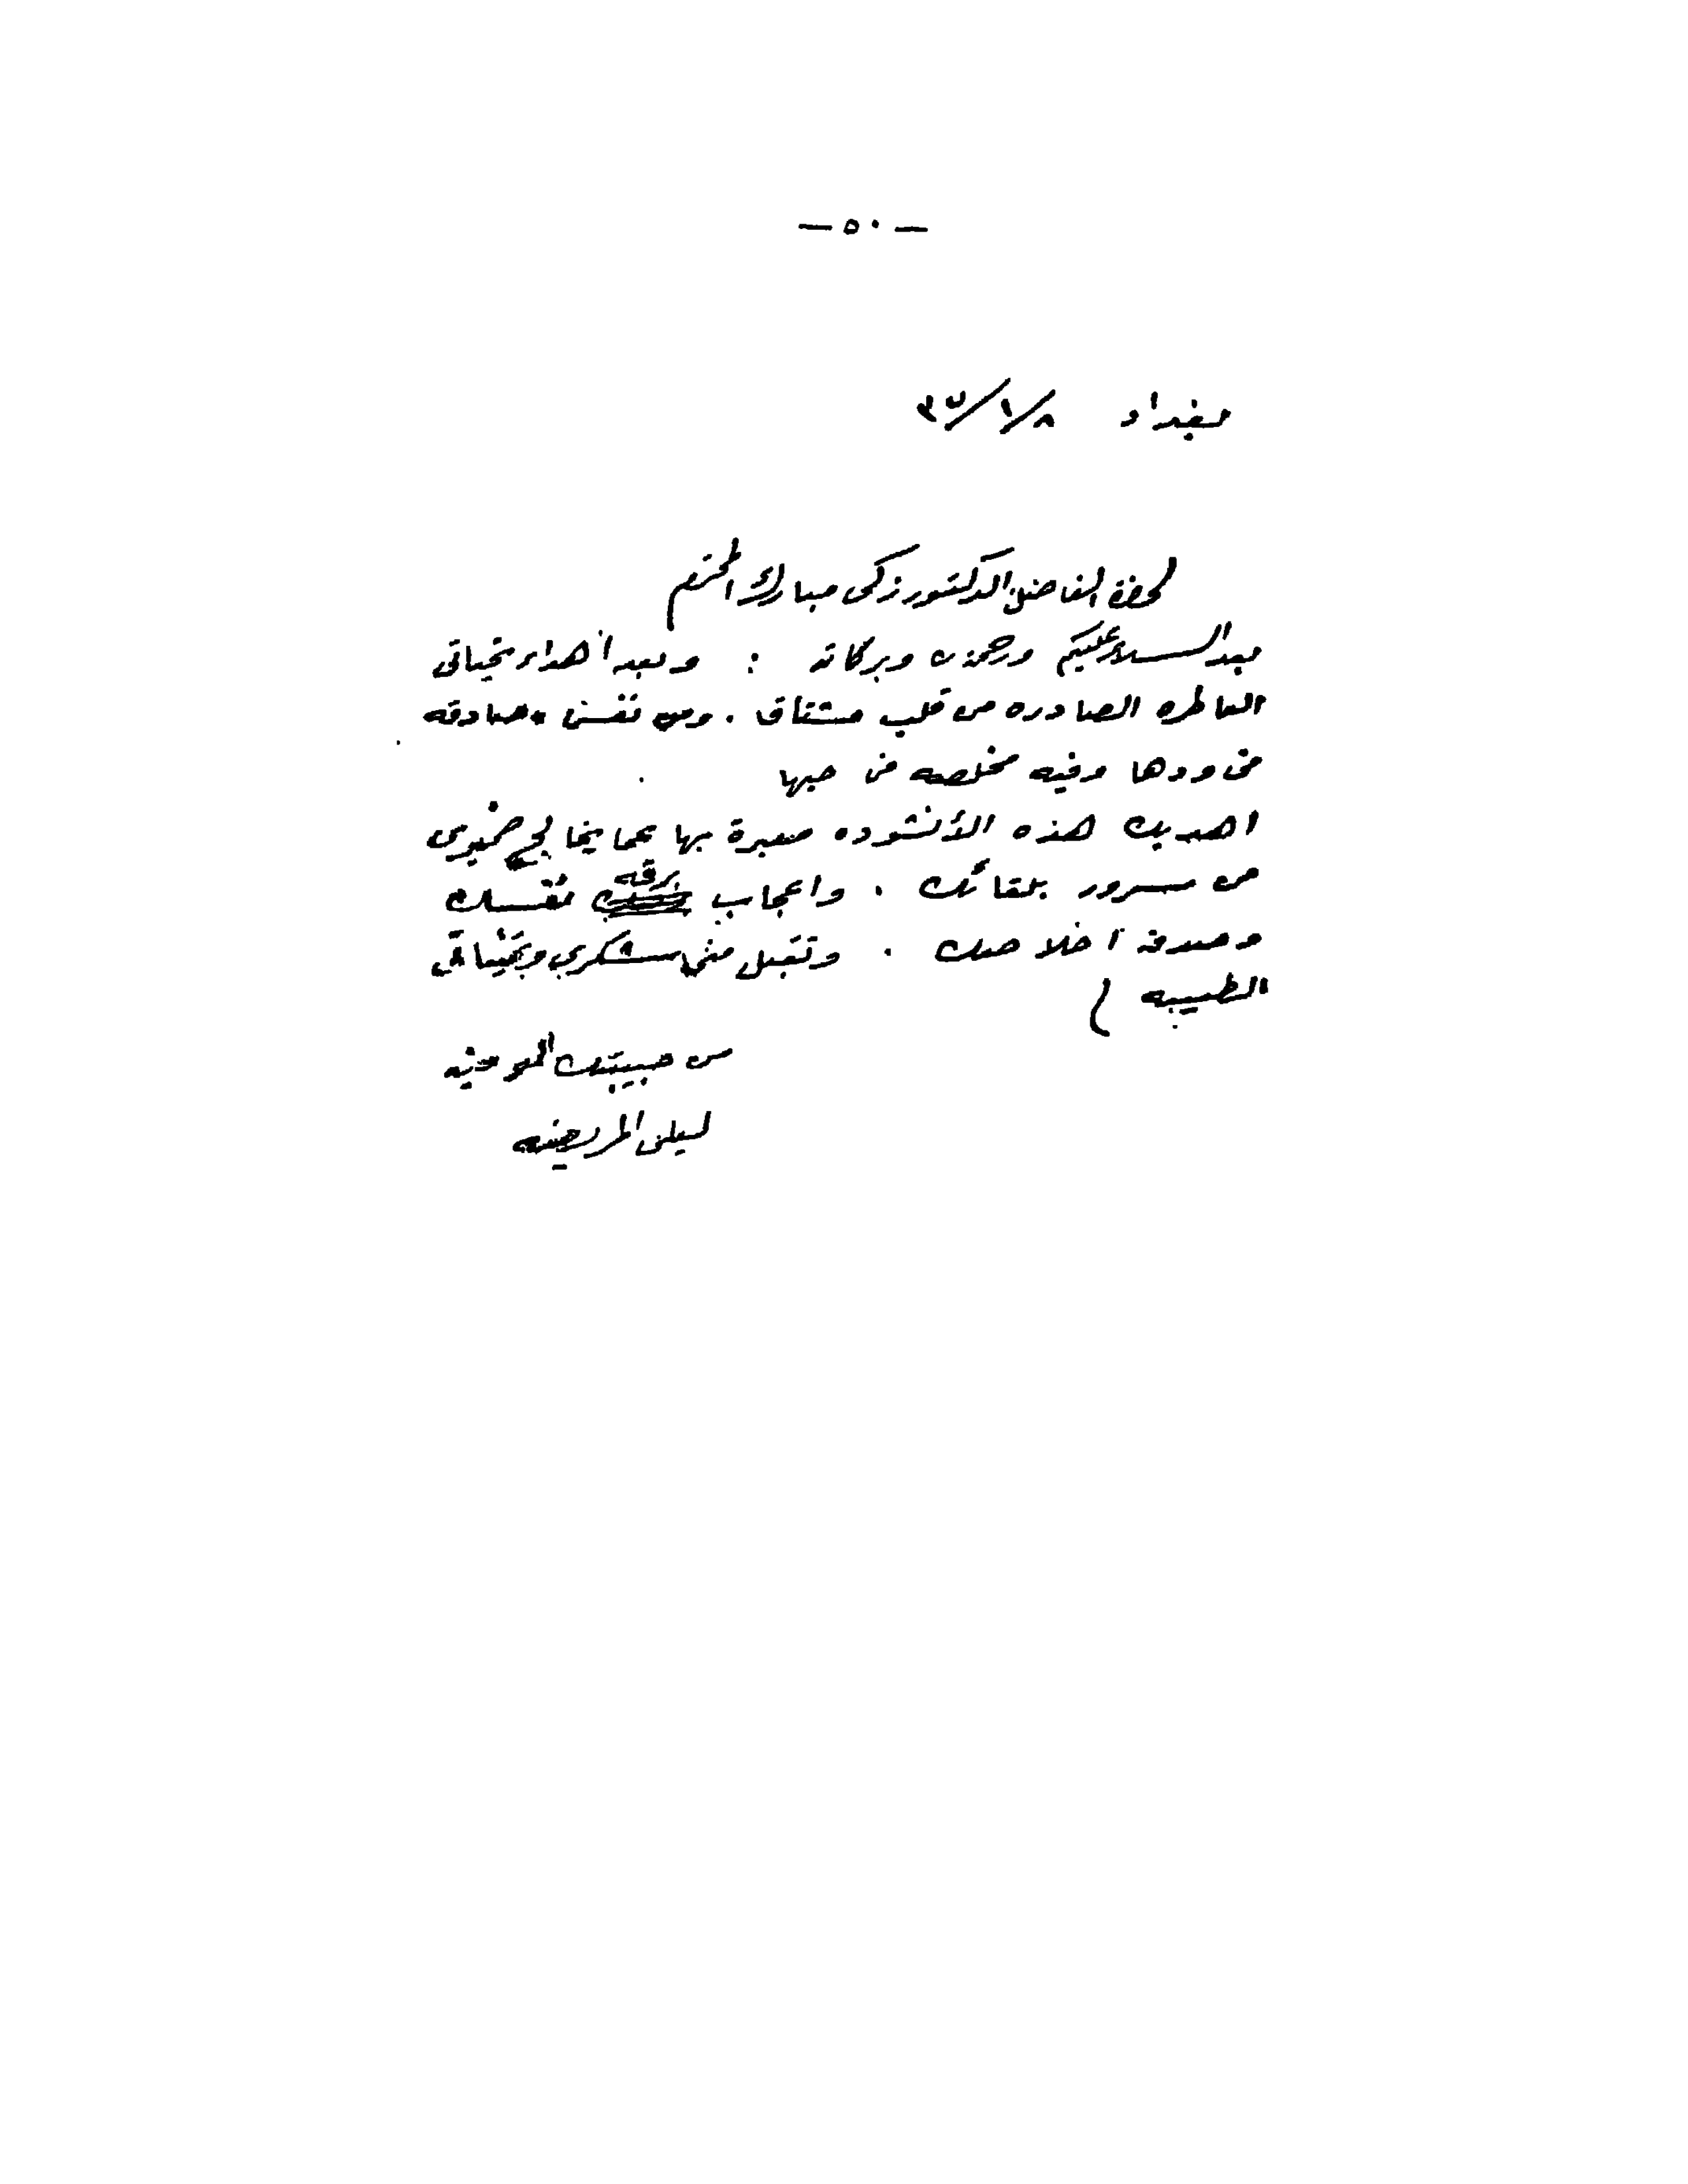 — ٥٠ —
بغداد ٨/١/٣٧
لحضرة الفاضل الدكتور زكي مبارك المحترم
بعد السلام عليكم ورحمة وبركاته : وبعد أهداء تحياتي
العاطره الصادره من قلب مشتاق . ومن نفس صادقه
في ودها وفيه مخلصه في حبها
اهديك هذه الأنشوده معبرة بها عما يخالج ضميري
من سرور بلقائك . واعجاب برقه نفسك
وصدق اخلاصك . وتقبل مني شكري وتحياتي
الطيبه
من حبيبتك الوفيه
ليلى المريضه